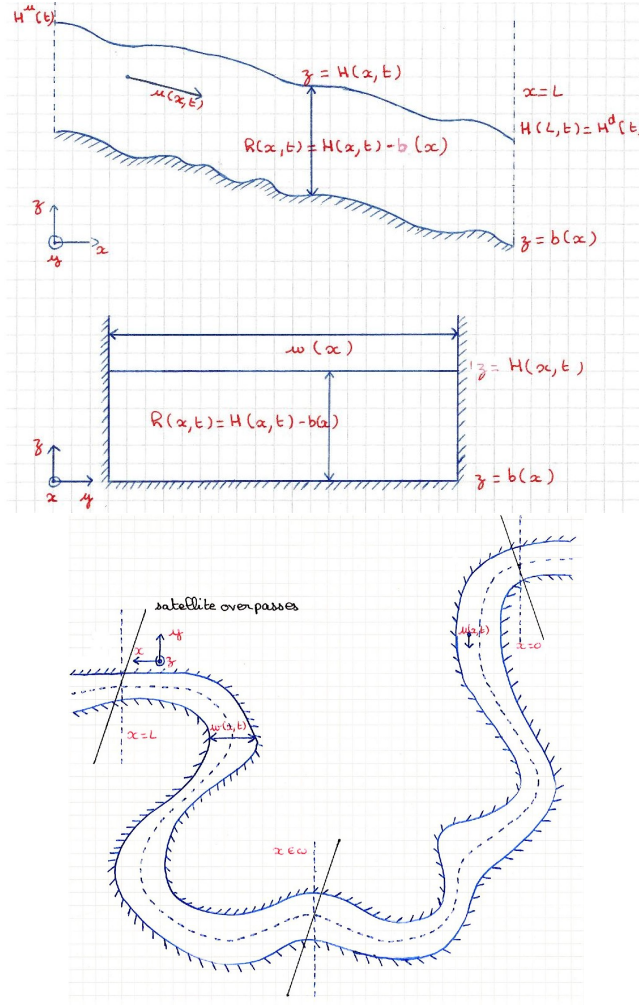 Hᵘ(t)
z = H(x,t)
u(x,t)
x=L
H(L,t)=Hᵈ(t
h(x,t)=H(x,t)-b(x)
z
x
y
z=b(x)
w(x)
z= H(x,t)
h(x,t)=H(x,t)-b(x)
z
x
y
z=b(x)
satellite overpasses
y
x
z
u(x,t)
x=0
x=L
w(x,t)
x∈ω